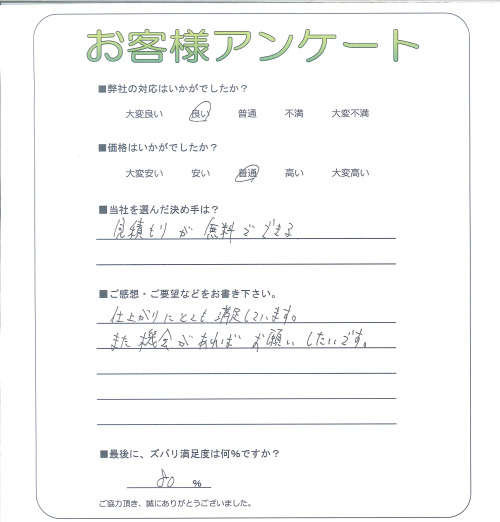 お客様アンケート
■弊社の対応はいかがでしたか？
大変良い 良い 普通 不満 大変不満
■価格はいかがでしたか？
大変安い 安い 普通 高い 大変高い
■当社を選んだ決め手は？
見積もりが無料でできる
■ご感想・ご要望などをお書き下さい。
仕上がりにとても満足しています。
また機会があればお願いしたいです。
■最後に、ズバリ満足度は何%ですか？
80 %
ご協力頂き、誠にありがとうございました。